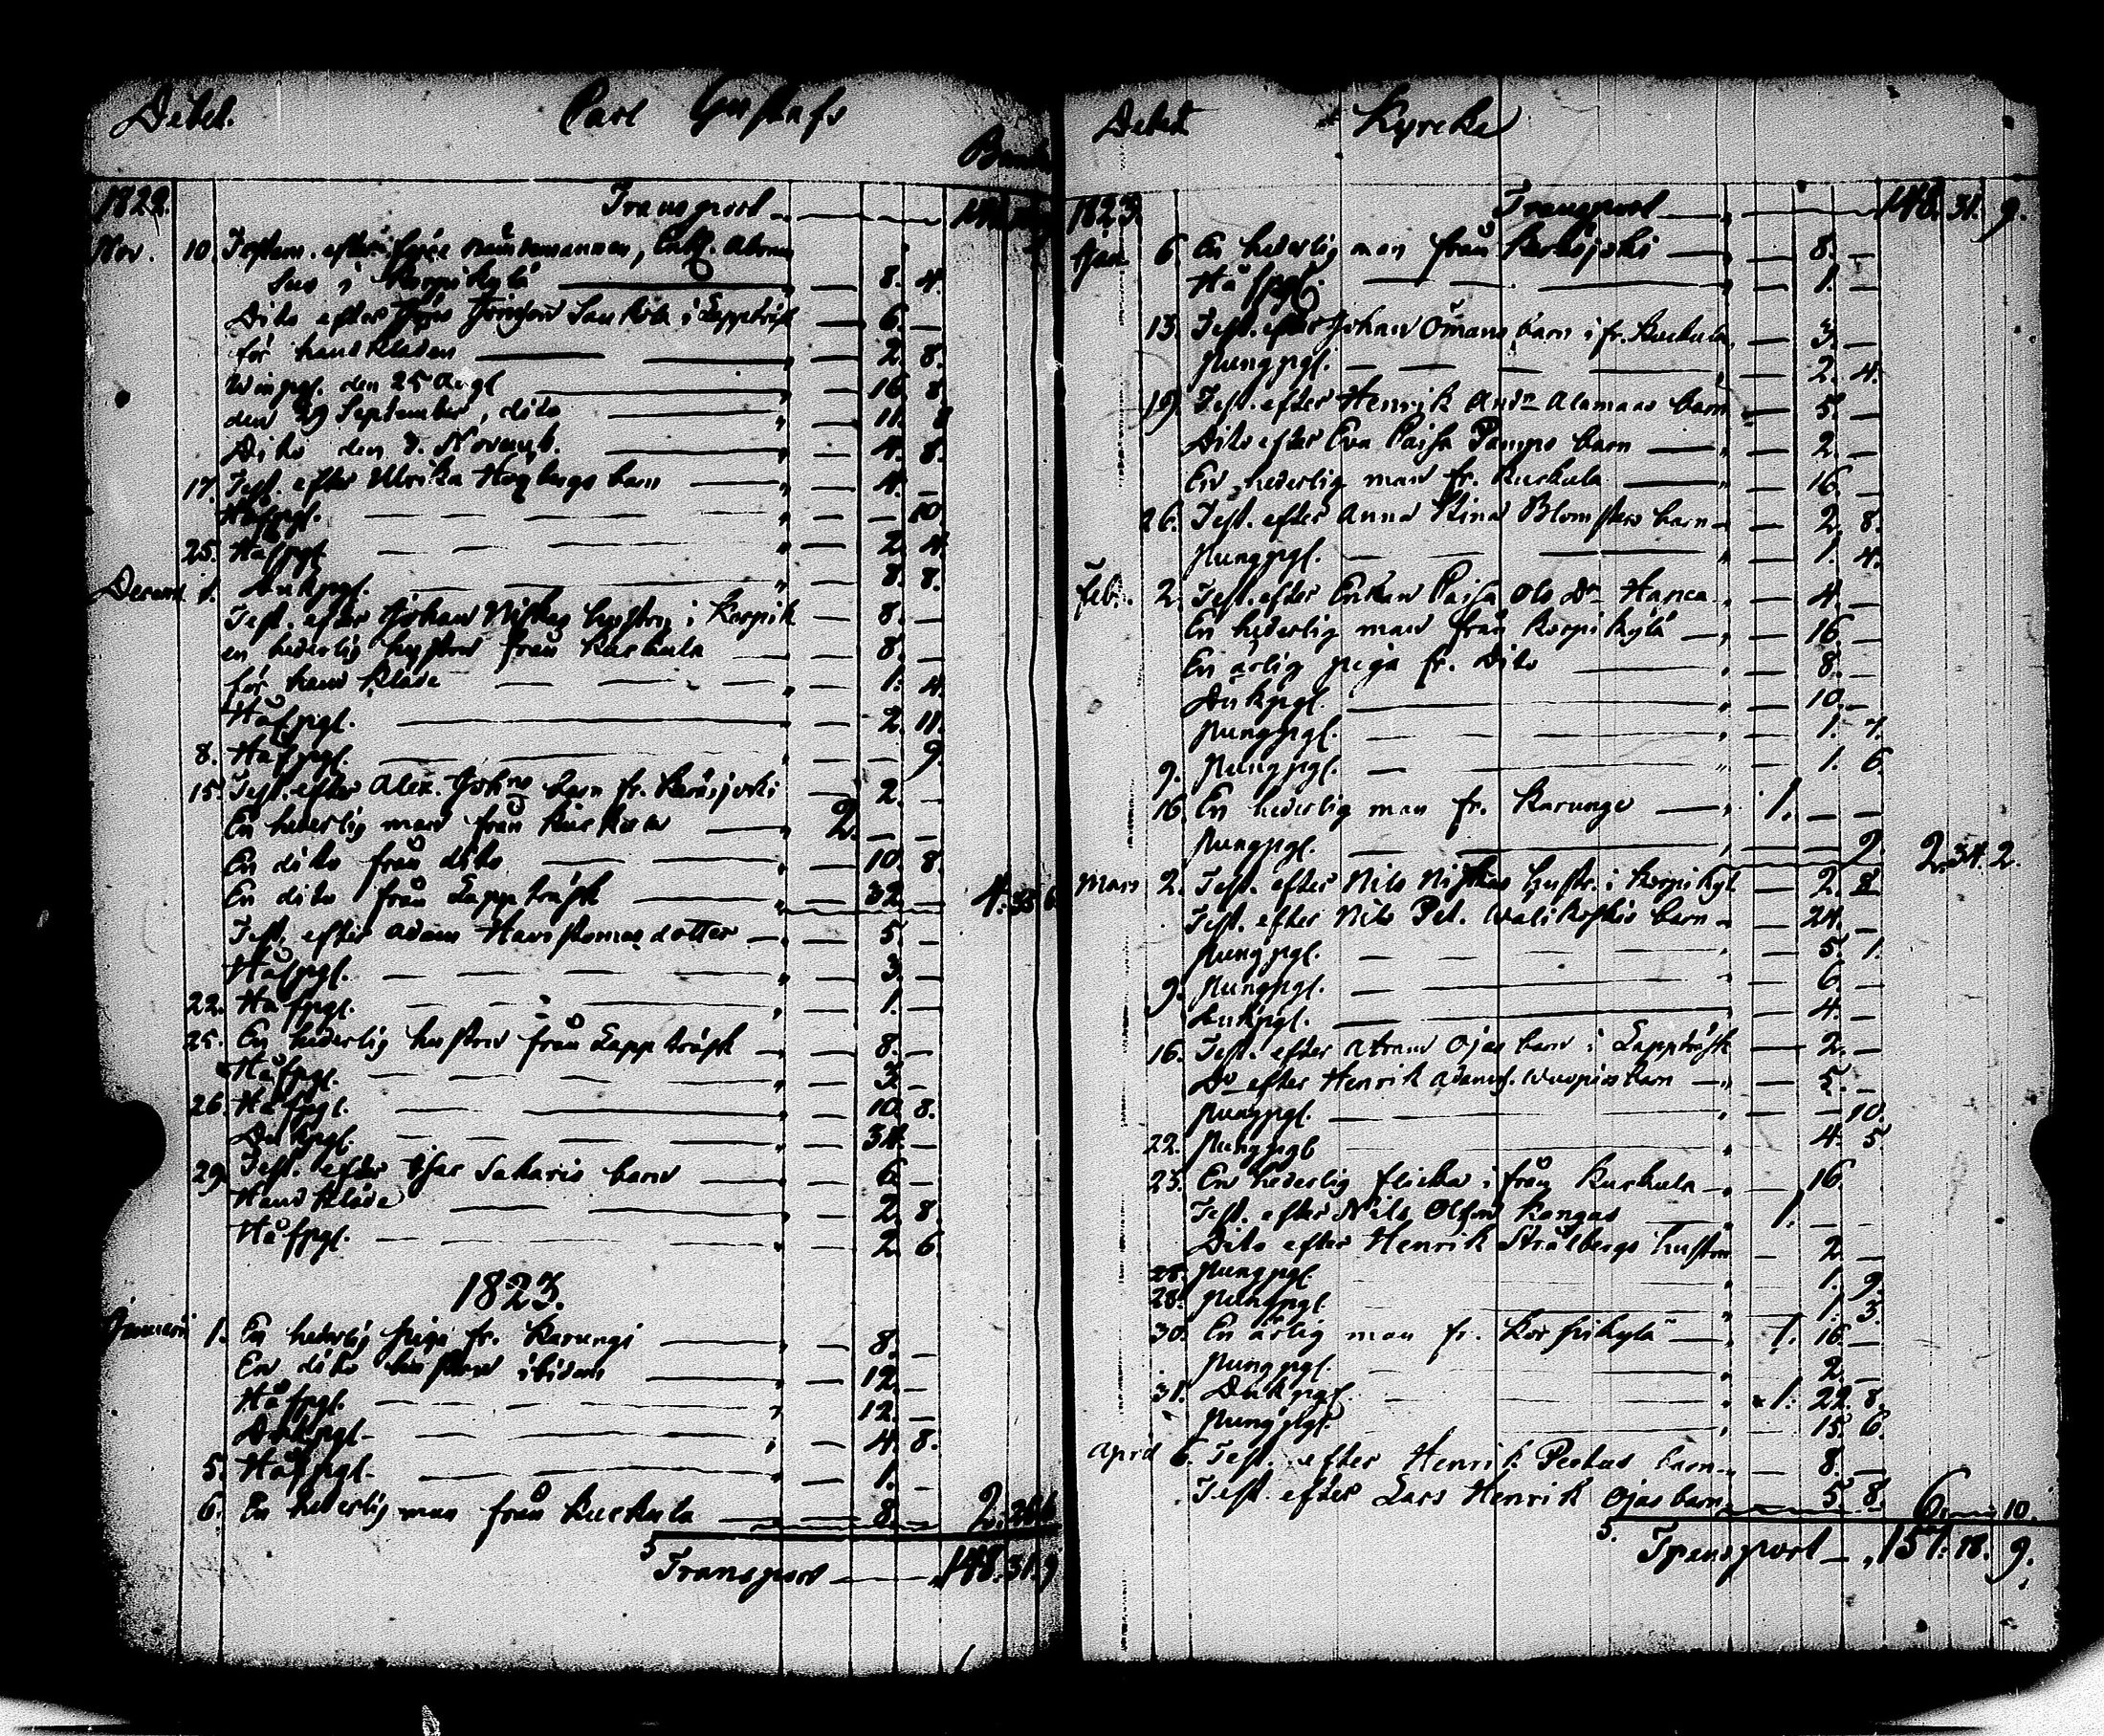 Debet. Carl Gustafs
Banco
1822. Transport
Nov. 10. Testam. efter förre nämndemannen, Abram
i Korpikylä — 8. 4.
Dito efter i Lappträsk — 6. —
för handkläden — 2. 8.
Winpgl. den 25 Augl — 16. 8.
den 29 September, dito — 11. 8
Dito den 3. Novemb. — 4. 8.
17. Test. efter Ulrika Hogbergs barn — 4. —
Håfpgl. — 10.
25. Håfpgl — 2. 4.
Decemb 1. Dukpgl. — 8. 8.
Test. efter Johan Niskas hustru i Korpik — 8. —
en hederlig hustru från Kuckula — 8. —
för handkläde — 1. 4.
Håfpgl. — 2. 11.
8. Håfpgl. — 9.
15. Test. efter Alex. Johns barn fr. Karásjocki — 2. —
En hederlig man från 2. — —
En dito från dito — 10. 8.
En dito från Lappträsk — 32. — 4. 33 6.
Test. efter Adam dotter — 5. —
Håfpgl. — 3. —
22. Håfpgl. — 1. —
25. En hederlig hustru från Lappträsk — 8. —
Håfpgl. — 3. —
26. Håfpgl. — 10. 8.
Dukpgl. — 34. —
29. Test. efter Isac Sakaris barn — 6. —
Handkläde — 2. 8.
Håfpgl. — 2. 6.
1823.
Januarii 1. En hederlig piga fr. Karungi — 8. —
En dito hustru ibidem — 12. —
Håfpgl. — 12. —
Dukpgl. — 4. 8.
5. Håfpgl. — 1. —
6. En hederlig man från Kuckula — 8. — 2.
Transport — 148. 31. 9
Debet Kyrcka
1823. Transport — 148. 31. 9.
Jan. 6. En hederlig man från Karásjocki — 8. —
Håfpgl. — 1. —
13. Test. efter Johan Ömans barn i fr. Kuckula — 3. —
Pungpgl. — 2. 4.
19. Test. efter Henrik Andrn Alamaas barn — 5. —
Dito efter Eva Caisa Pamps barn — 2. —
En hederlig man fr. Kuckula — 16. —
26. Test. efter Anna Stina Blomsters barn — 2. 8.
Pungpgl. — 1. 4.
Feb. 2. Test. efter Enkan Caisa Ols Dr Hapca — 4. —
En hederlig man från Korpikylä — 16. —
En ärlig piga fr. Dito — 8. —
Dukpgl. — 10. —
Pungpgl. — 1. 7.
9. Pungpgl. — 1. 6.
16. En hederlig man fr. Karunge — 1. — —
Pungpgl. — 9. 2. 34. 2.
Mars 2. Test. efter Nils Niskas hustr. i Korpikyl — 2. 8
Test. efter Nils Pet. Walikoskis barn — 24. —
Pungpgl. — 5. 1.
9. Pungpgl. — 6. —
Dukpgl. — 4. —
16. Test. efter Abram Ojas barn i Lappträsk — 2. —
Do efter Henrik Adamss. barn — 5. —
Pungpgl. — 10.
22. Pungpgl — 4. 5
23. En hederlig flicka i från Kuckula — 16.
Test. efter Nils Olsson Kangas — 1. — —
Dito efter Henrik Strålbergs hustru — 2. —
25. Pungpgl. — 1. 9.
28. Pungpgl. — 1. 3.
30. En ärlig man fr. Korpikylä — 1. 16. —
Pungpgl. — 2. —
31. Dukpgl. — 1. 22. 8.
Pungpgl. — 15. 6.
April 6. Test. efter Henrik Peckas barn — 8. —
Test. efter Lars Henrik Ojas barn — 5. 8. 6. — 10.
Transport — 157. 18. 9.